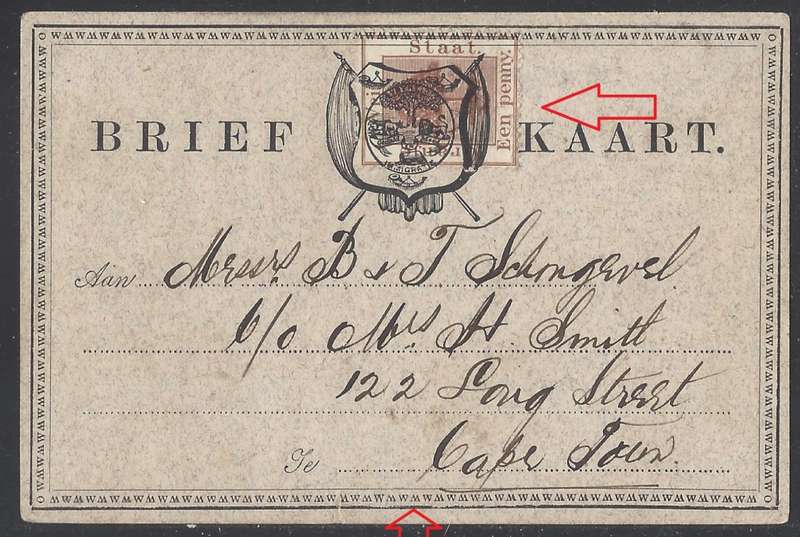 Staat.
Een penny.
BRIEF KAART.
Aan Messrs B & T Schongevel
c/o Mrs H. Smitt
122 Long Street
Te Cape Town.